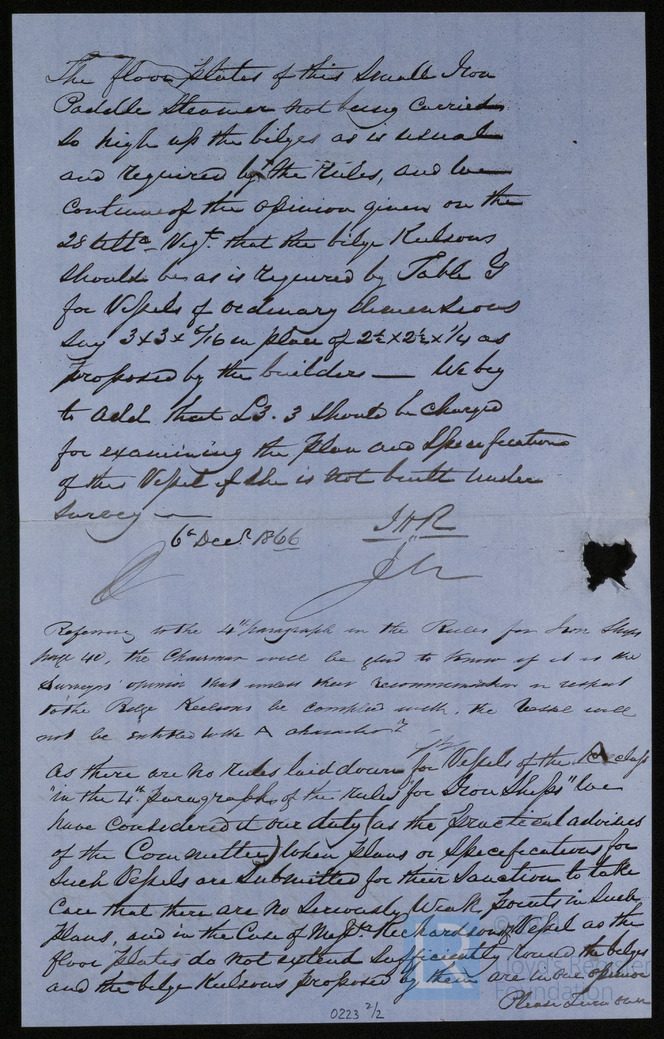 The floor plates of this Small Iron
Paddle Steamer not being carried
so high up the bilges as is usual
and required by the Rules, and we
continue of the opinion given on the
28 Ulto Viz. that the bilge Keelsons
should be as is required by Table G
for Vessels of ordinary dimensions
say 3x3x 5/16 in place of 2½x2½x1/4 as
proposed by the builders — We beg
to add that £3.3 should be charged
for examining the plan and Specifications
of this Vessel if she is not built under
survey —
6th Decr. 1866
Referring to the 4th paragraph in the Rules for Iron Ships
page 40, the Chairman will be glad to know if it is the
Surveyors' opinion that unless their recommendation in respect
to the Bilge Keelsons be complied with, the Vessel will
not be entitled to the A character?
As there are no rules laid down for Vessels of the A class
"in the 4th paragraph of the rules for Iron Ships" We
have considered it our duty (as the practical advisers
of the Committee) when plans or Specifications for
such Vessels are submitted for their Sanction to take
care that there are no seriously weak points in such
plans, and in the case of Richardson's Vessel as the
floor plates do not extend sufficiently round the bilges
and the bilge Keelsons proposed by them are in our opinion
Please turn over
0223 2/2
Lloyd's Register
Foundation